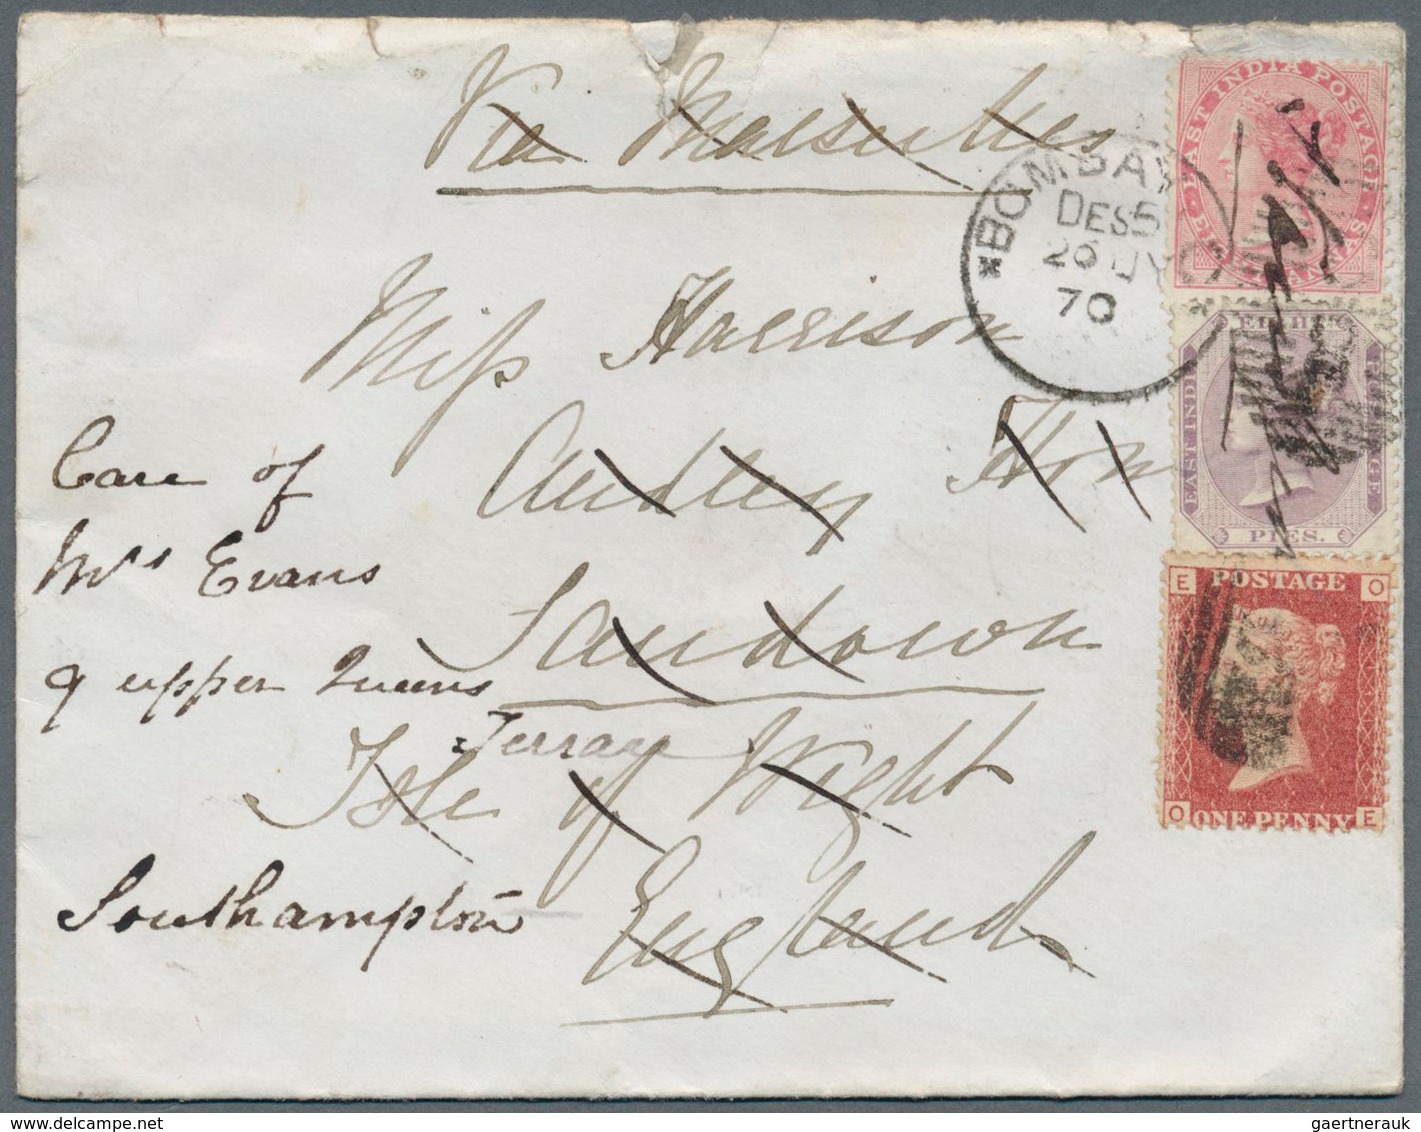 Via Marseilles
Miss Harrison
Audley
Sandown
Isle of Wight
England
Care of
Mrs Evans
9 upper Queens
Terrace
Southampton
*BOMBAY
DES5
26 JY
70
EAST INDIA POSTAGE
EIGHT ANNAS
EIGHT
EAST INDIA
POSTAGE
PIES.
E POSTAGE O
O ONE PENNY E
gaertnerauk